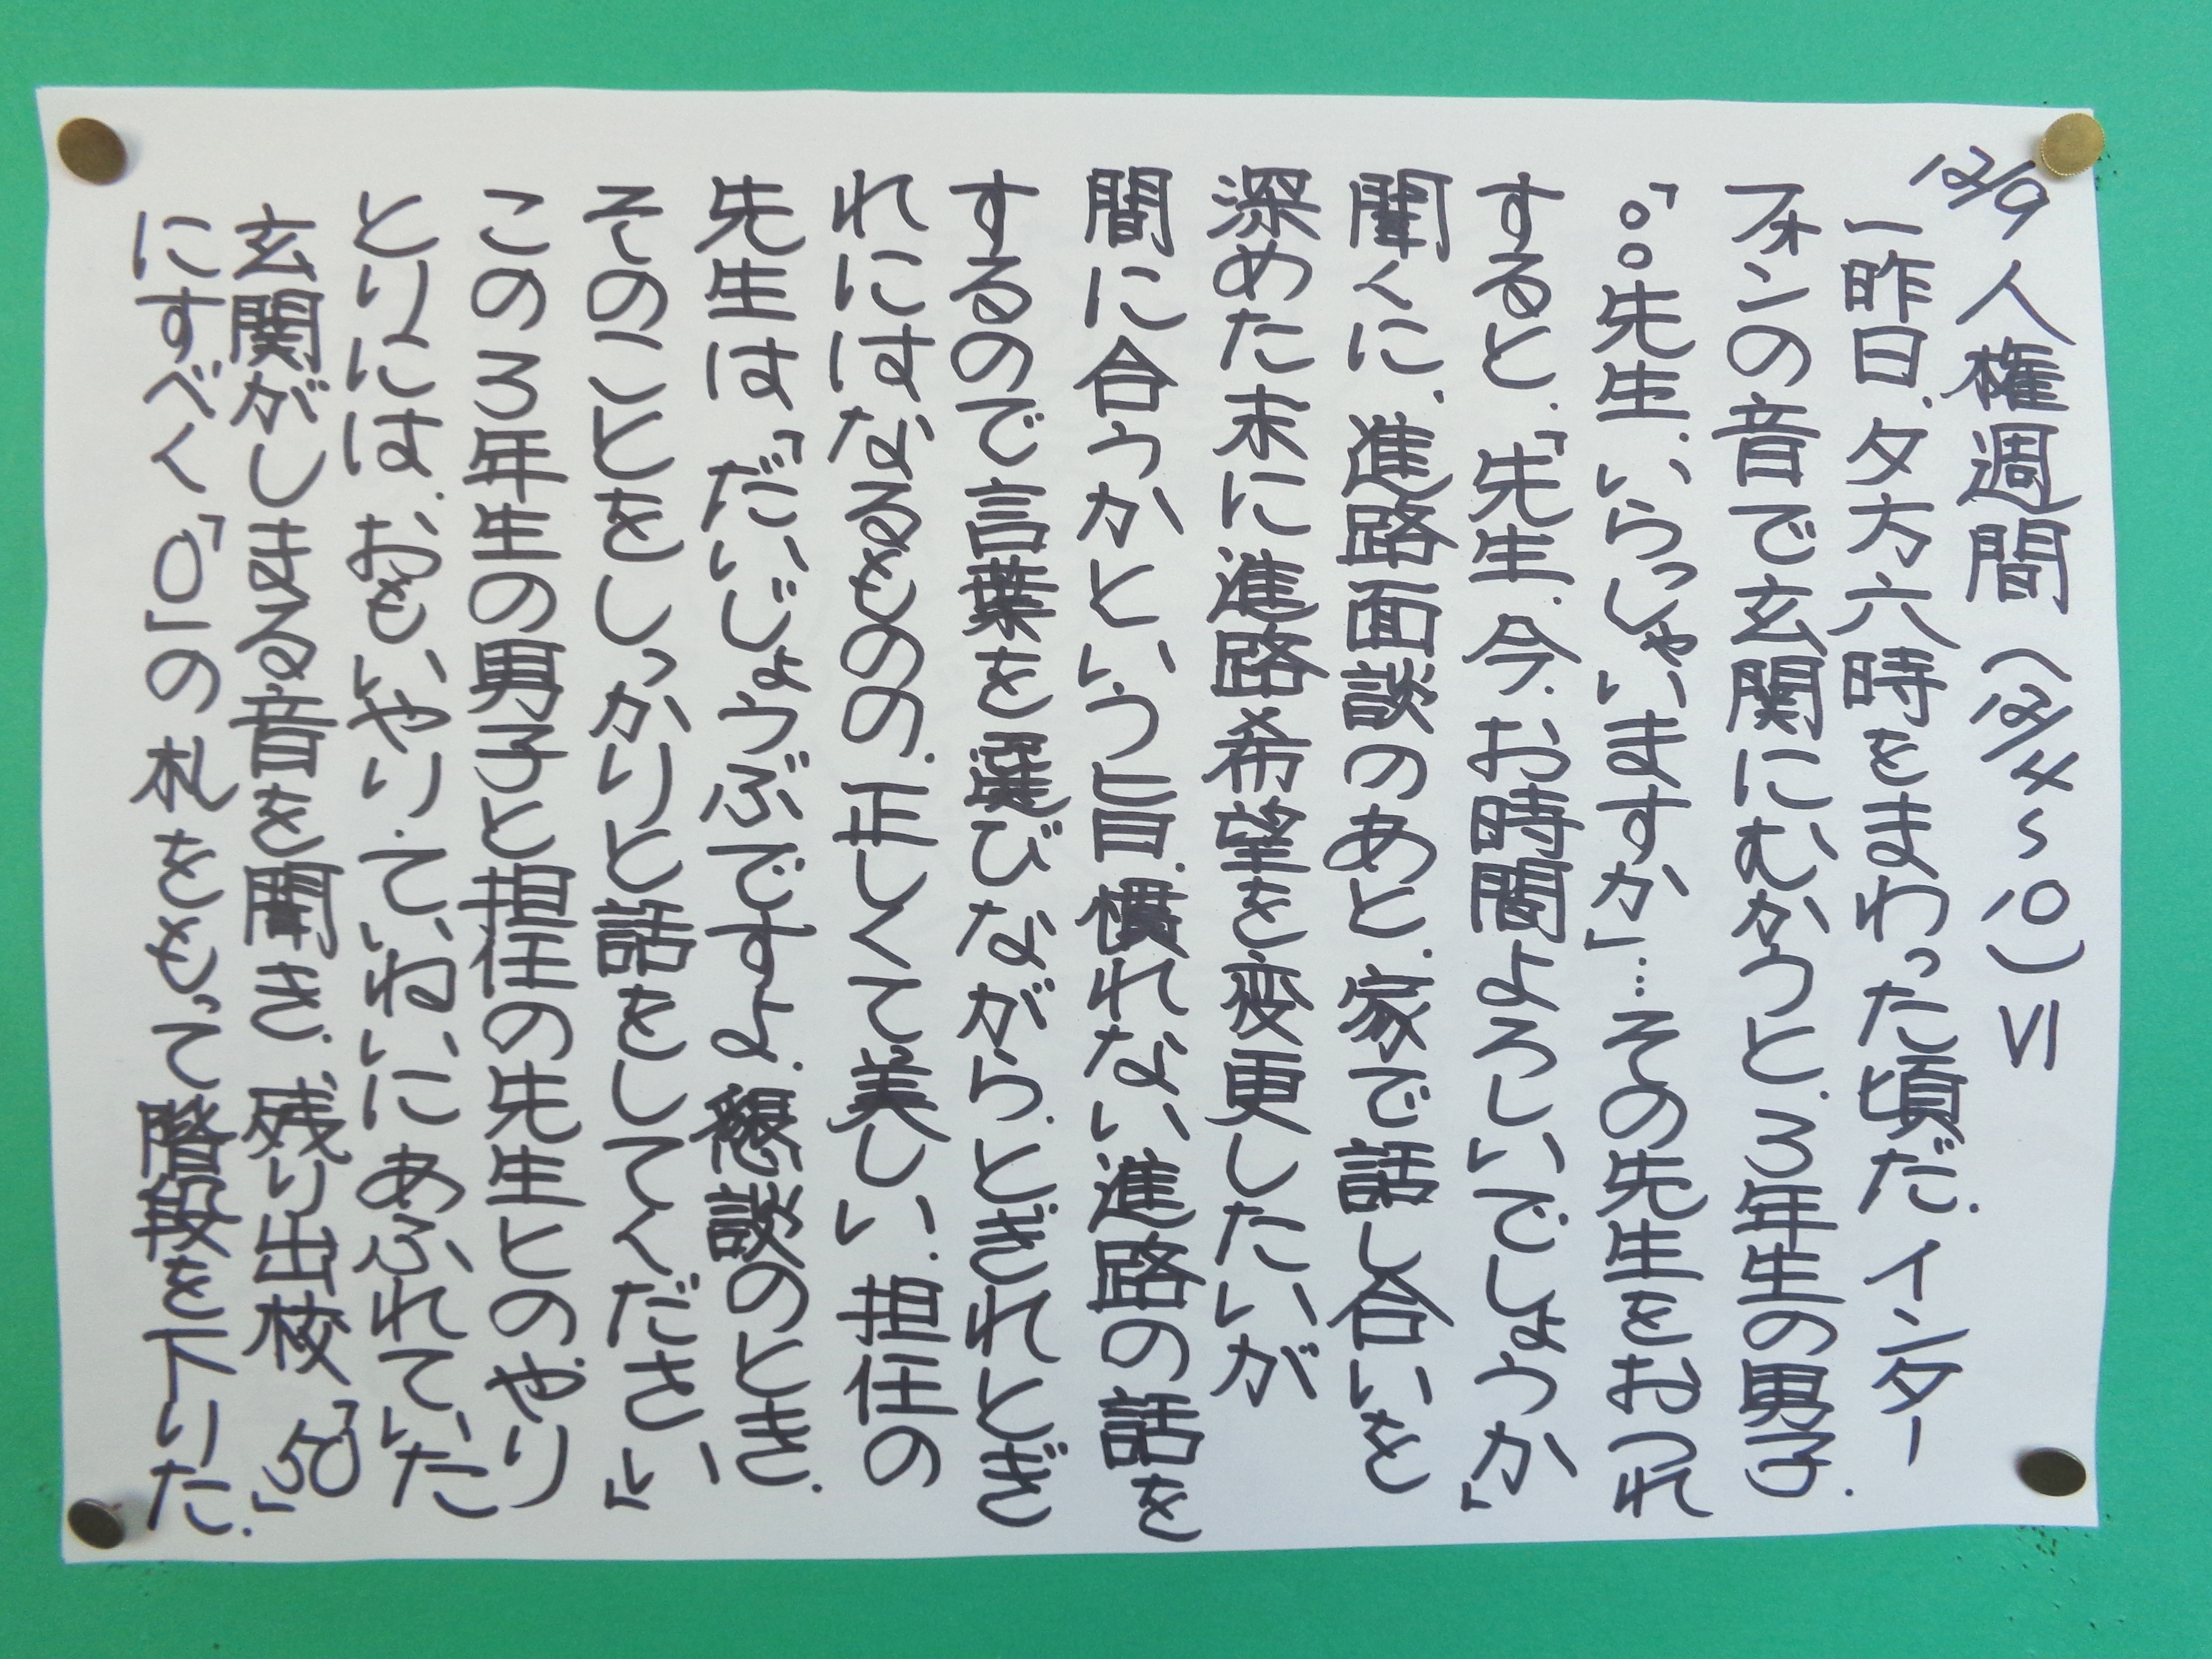 12/9 人権週間(12/4〜10)Ⅵ
一昨日、夕方六時をまわった頃だ。インター
フォンの音で玄関にむかうと、3年生の男子。
「○○先生、いらっしゃいますか」…その先生をおつれ
すると、「先生、今、お時間よろしいでしょうか」
聞くに、進路面談のあと、家で話し合いを
深めた末に進路希望を変更したいが
間に合うかという旨。慣れない進路の話を
するので言葉を選びながら、とぎれとぎ
れにはなるものの、正しくて美しい。担任の
先生は「だいじょうぶですよ。懇談のとき、
そのことをしっかりと話をしてください」
この3年生の男子と担任の先生とのやり
とりには、おもいやり・ていねいにあふれていた
玄関がしまる音を聞き、残り出校「50」
にすべく「0」の札をもって階段を下りた。